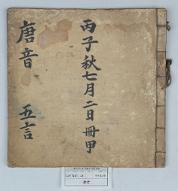 丙子秋七月二日冊甲
唐音 五言